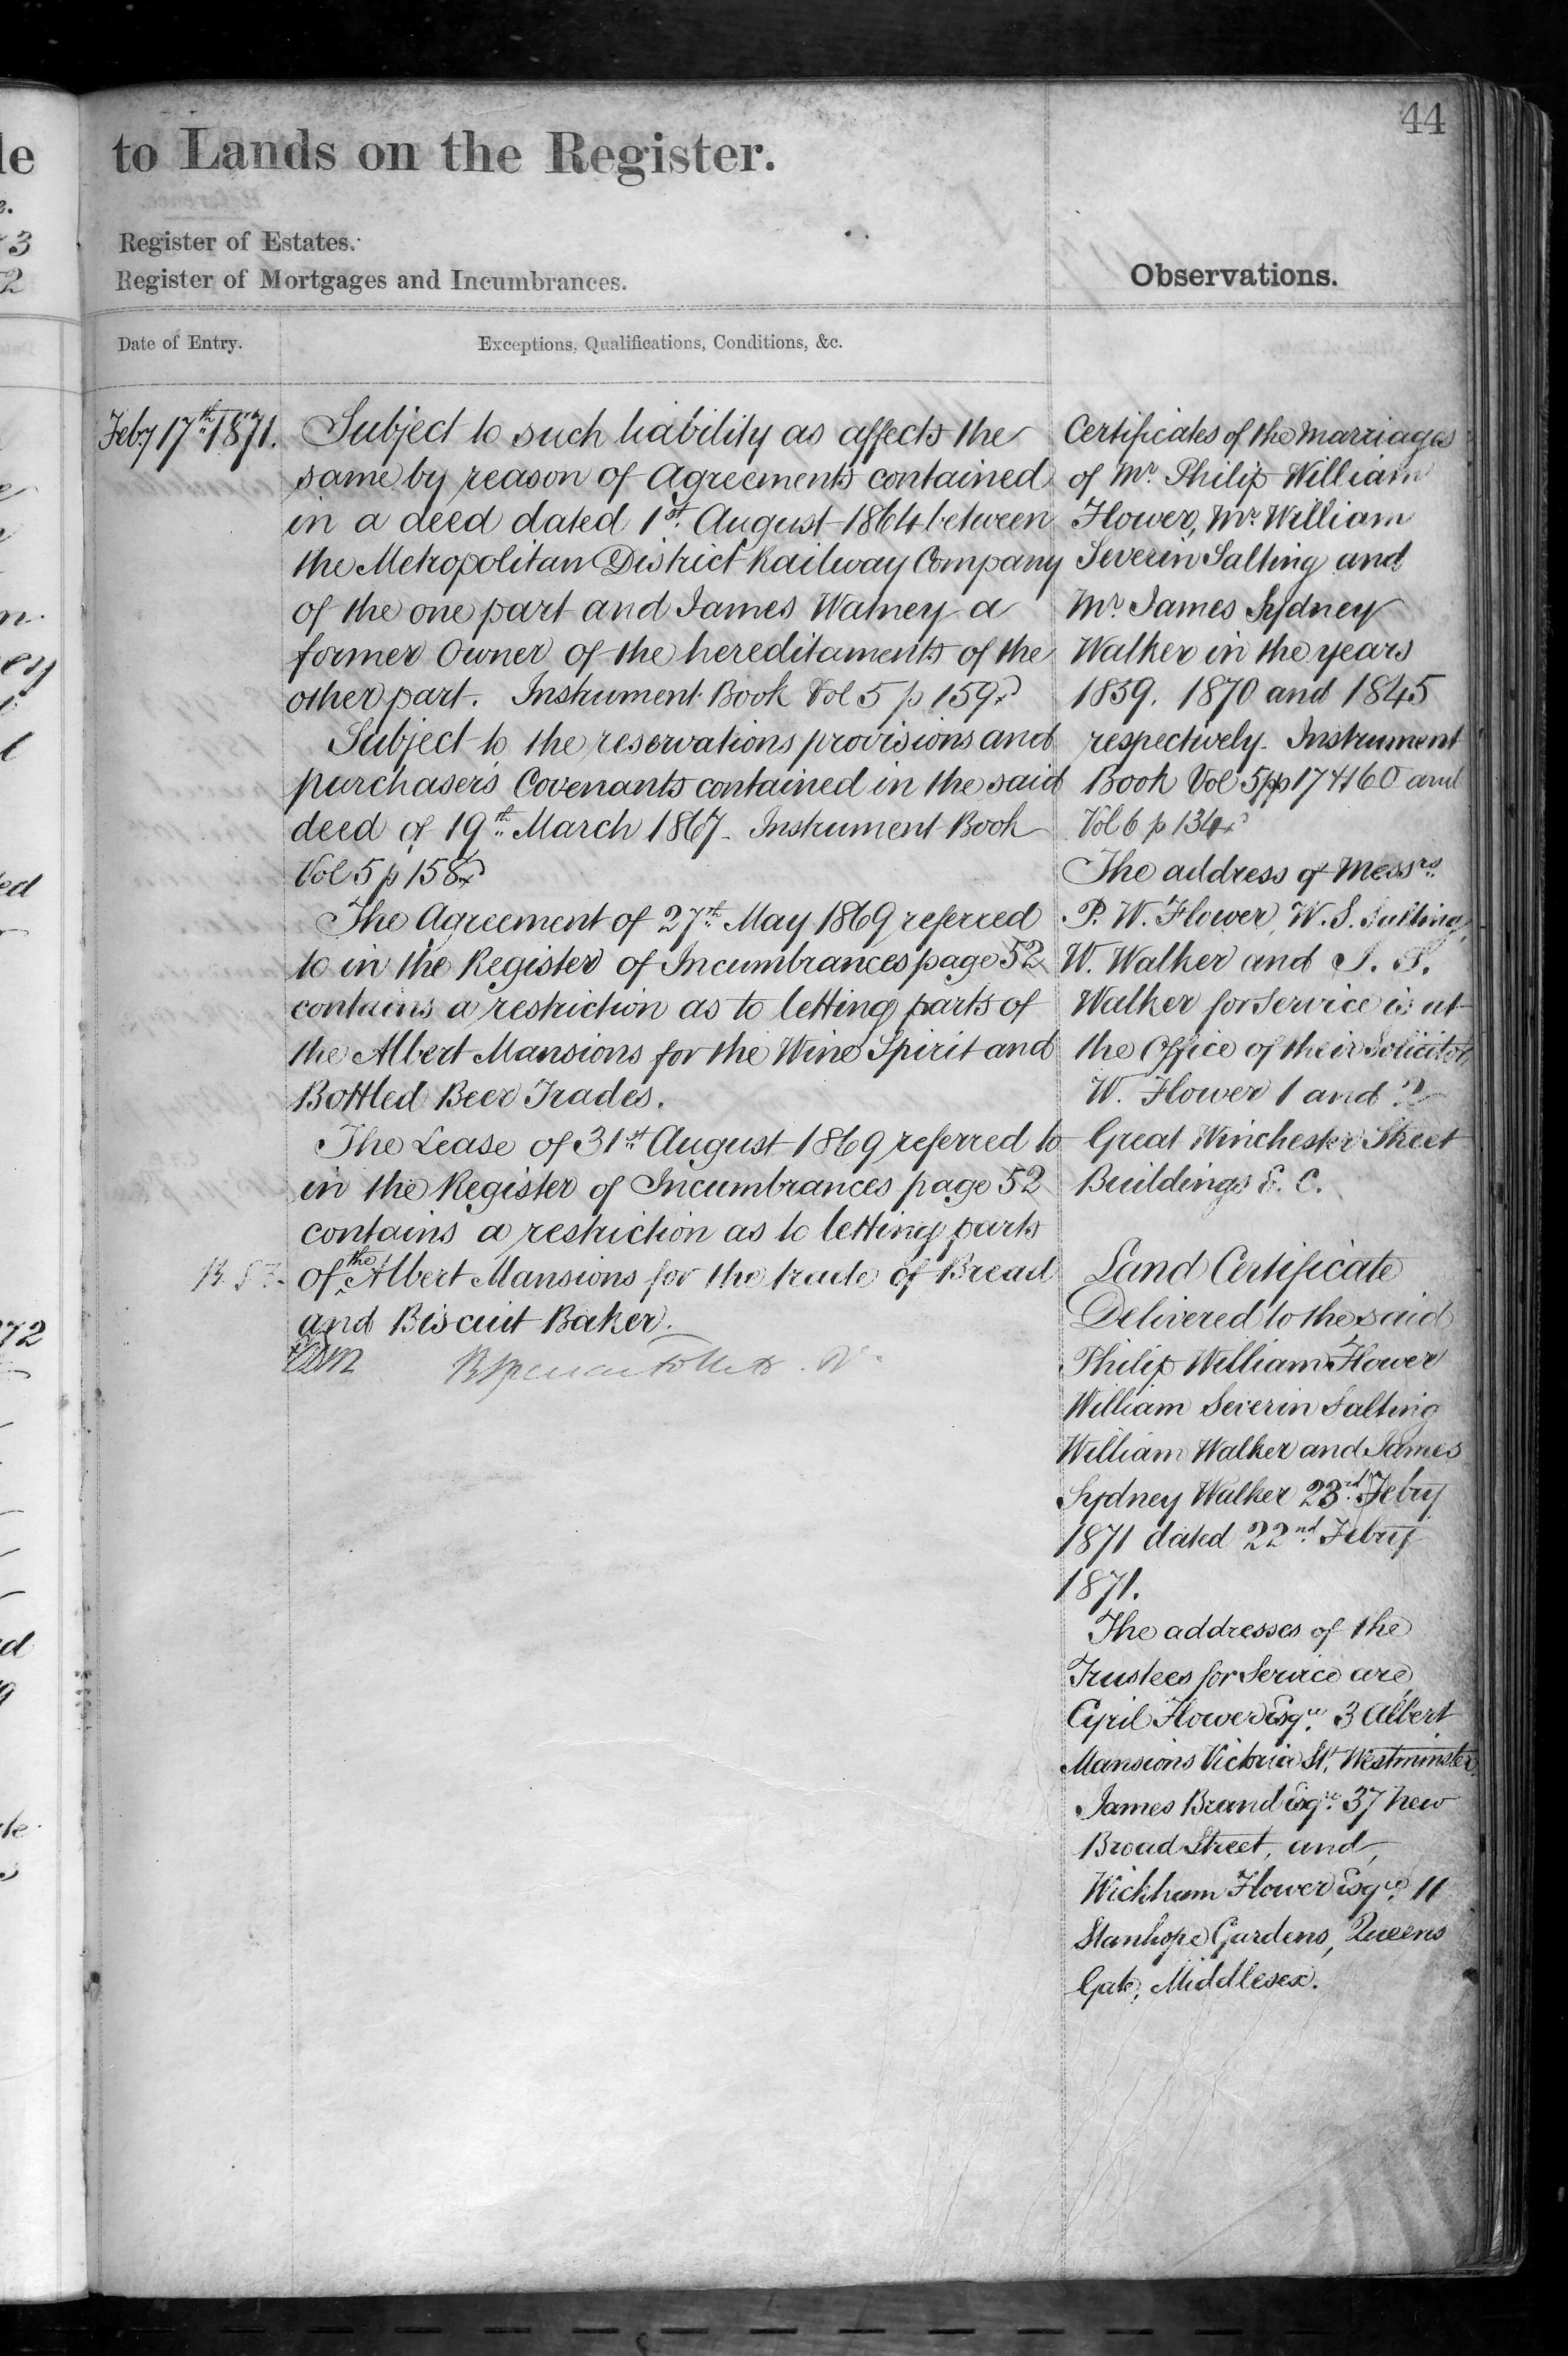 44
to Lands on the Register.
Register of Estates.
Register of Mortgages and Incumbrances.
Observations.
Date of Entry.
Exceptions, Qualifications, Conditions, &c.
Feby 17th 1871.
Subject to such liability as affects the
same by reason of Agreements contained
in a deed dated 1st August 1864 between
the Metropolitan District Railway Company
of the one part and James Watney a
former Owner of the hereditaments of the
other part. Instrument Book Vol 5 p 159
Subject to the reservations provisions and
purchasers Covenants contained in the said
deed of 19th March 1867. Instrument Book
Vol 5 p 158
The Agreement of 27th May 1869 referred
to in the Register of Incumbrances page 52
contains a restriction as to letting parts of
the Albert Mansions for the Wine Spirit and
Bottled Beer Trades.
The Lease of 31st August 1869 referred to
in the Register of Incumbrances page 52
contains a restriction as to letting parts
of the Albert Mansions for the trade of Bread
and Biscuit Baker.
Certificates of the marriages
of Mr. Philip William
Flower, Mr. William
Severin Salting and
Mr. James Sydney
Walker in the years
1859. 1870 and 1845
respectively. Instrument
Book Vol 5 pp 174 160 and
Vol 6 p 134
The address of Messrs
P. W. Flower, W. S. Salting,
W. Walker and J. S.
Walker for Service is at
the Office of their Solicitor
W. Flower 1 and 2
Great Winchester Street
Buildings E. C.
Land Certificate
Delivered to the said
Philip William Flower
William Severin Salting
William Walker and James
Sydney Walker 23rd Feby
1871 dated 22nd Feby
1871.
The addresses of the
Trustees for Service are
Cyril Flower Esqre 3 Albert
Mansions Victoria St. Westminster,
James Brand Esqre 37 New
Broad Street, and,
Wickham Flower Esqre 11
Stanhope Gardens, Queens
Gate, Middlesex.